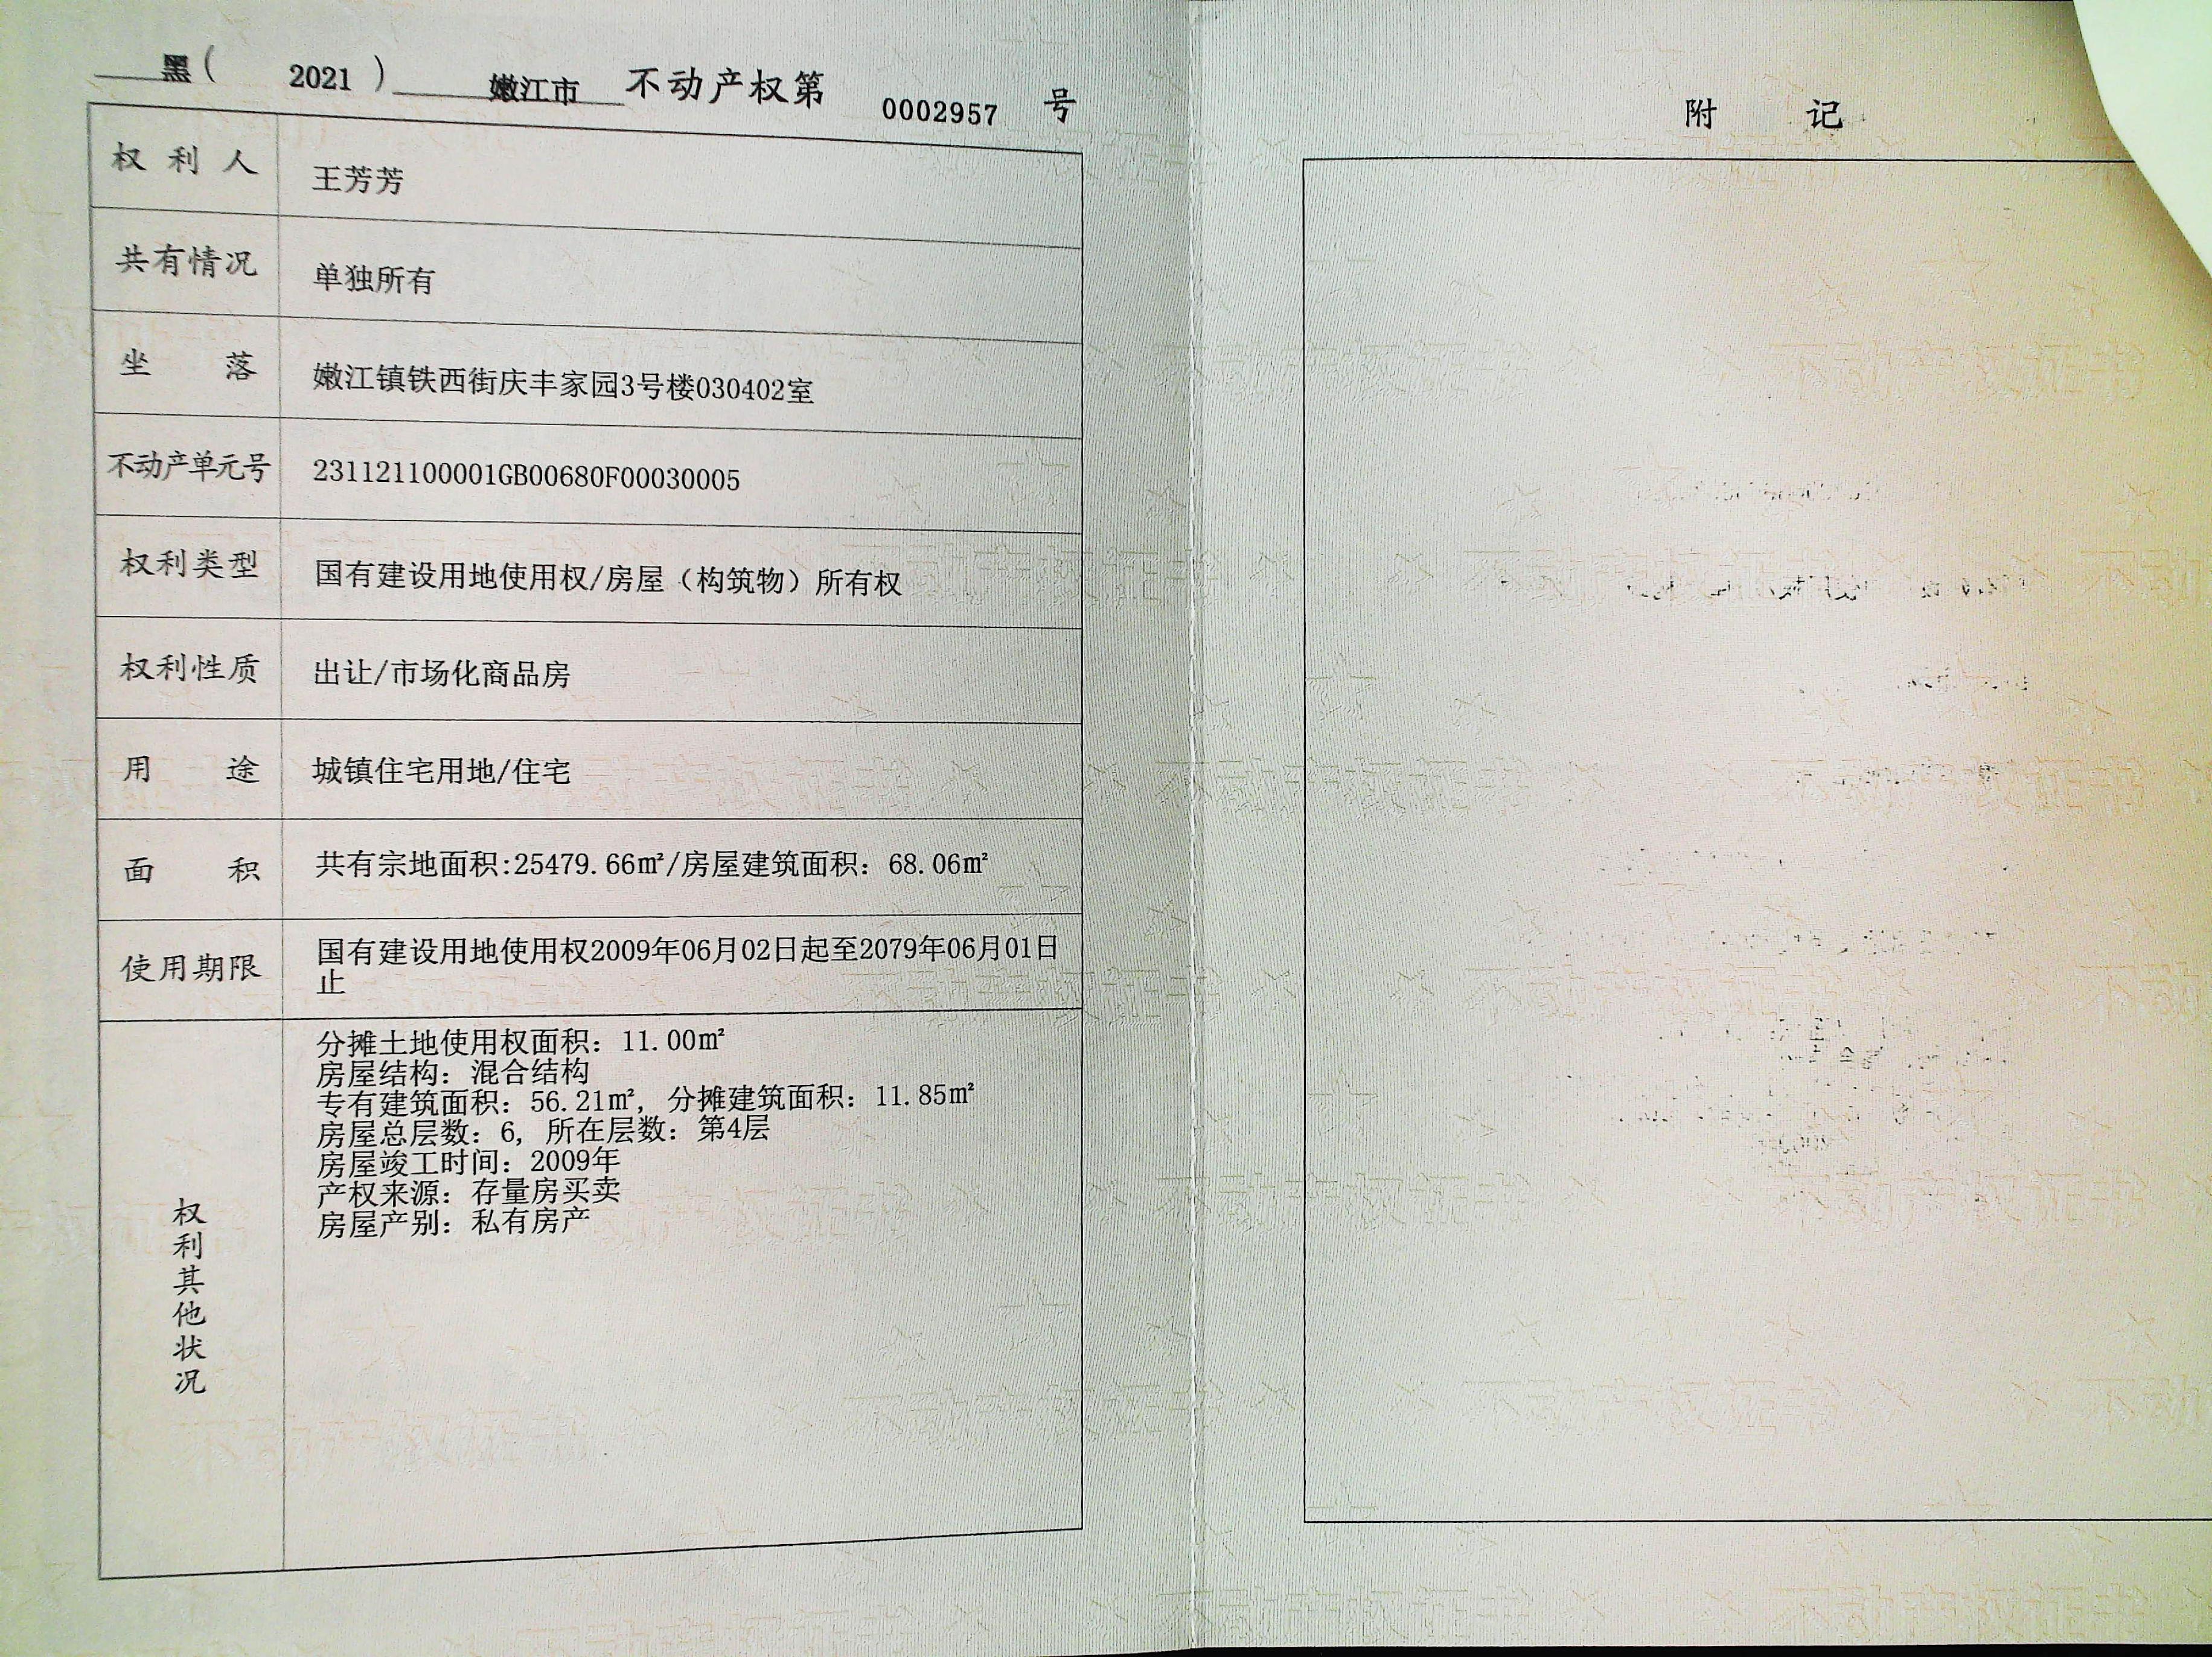 黑( 2021 ) 嫩江市 不动产权第 0002957 号
权利人 王芳芳
共有情况 单独所有
坐落 嫩江镇铁西街庆丰家园3号楼030402室
不动产单元号 231121100001GB00680F00030005
权利类型 国有建设用地使用权/房屋（构筑物）所有权
权利性质 出让/市场化商品房
用途 城镇住宅用地/住宅
面积 共有宗地面积:25479.66㎡/房屋建筑面积：68.06㎡
使用期限 国有建设用地使用权2009年06月02日起至2079年06月01日
止
权利其他状况
分摊土地使用权面积：11.00㎡
房屋结构：混合结构
专有建筑面积：56.21㎡，分摊建筑面积：11.85㎡
房屋总层数：6，所在层数：第4层
房屋竣工时间：2009年
产权来源：存量房买卖
房屋产别：私有房产
附记